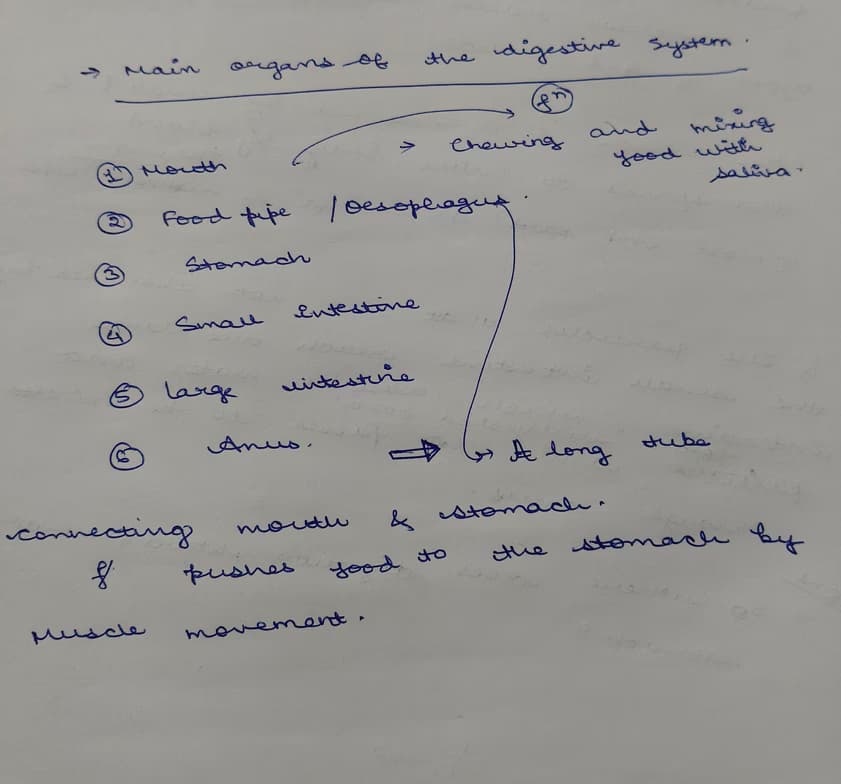 → Main organs of the digestive system.
fⁿ
① Mouth → Chewing and mixing
food with
saliva.
② Food pipe / Oesophagus.
③ Stomach
④ Small intestine
⑤ Large intestine
⑥ Anus. ⇒ ↳ A long tube
connecting mouth & stomach.
& pushes food to the stomach by
Muscle movement.